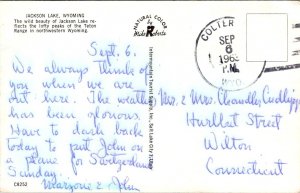 JACKSON LAKE, WYOMING
The wild beauty of Jackson Lake re-
flects the lofty peaks of the Teton
Range in northwestern Wyoming.
Sept. 6.
We always think of
you when we are
out here. The weather
has been glorious.
Have to dash back
today to put John on
a plane for Switzerland
Sunday.
Marjorie & John
C8252
NATURAL COLOR
by
Mike Roberts
Intermountain Tourist Supply, Inc., Salt Lake City
COLTER
SEP
6
P.M.
Mr. & Mrs. Chandler Cudlipp
Hurlbut Street
Wilton
Connecticut